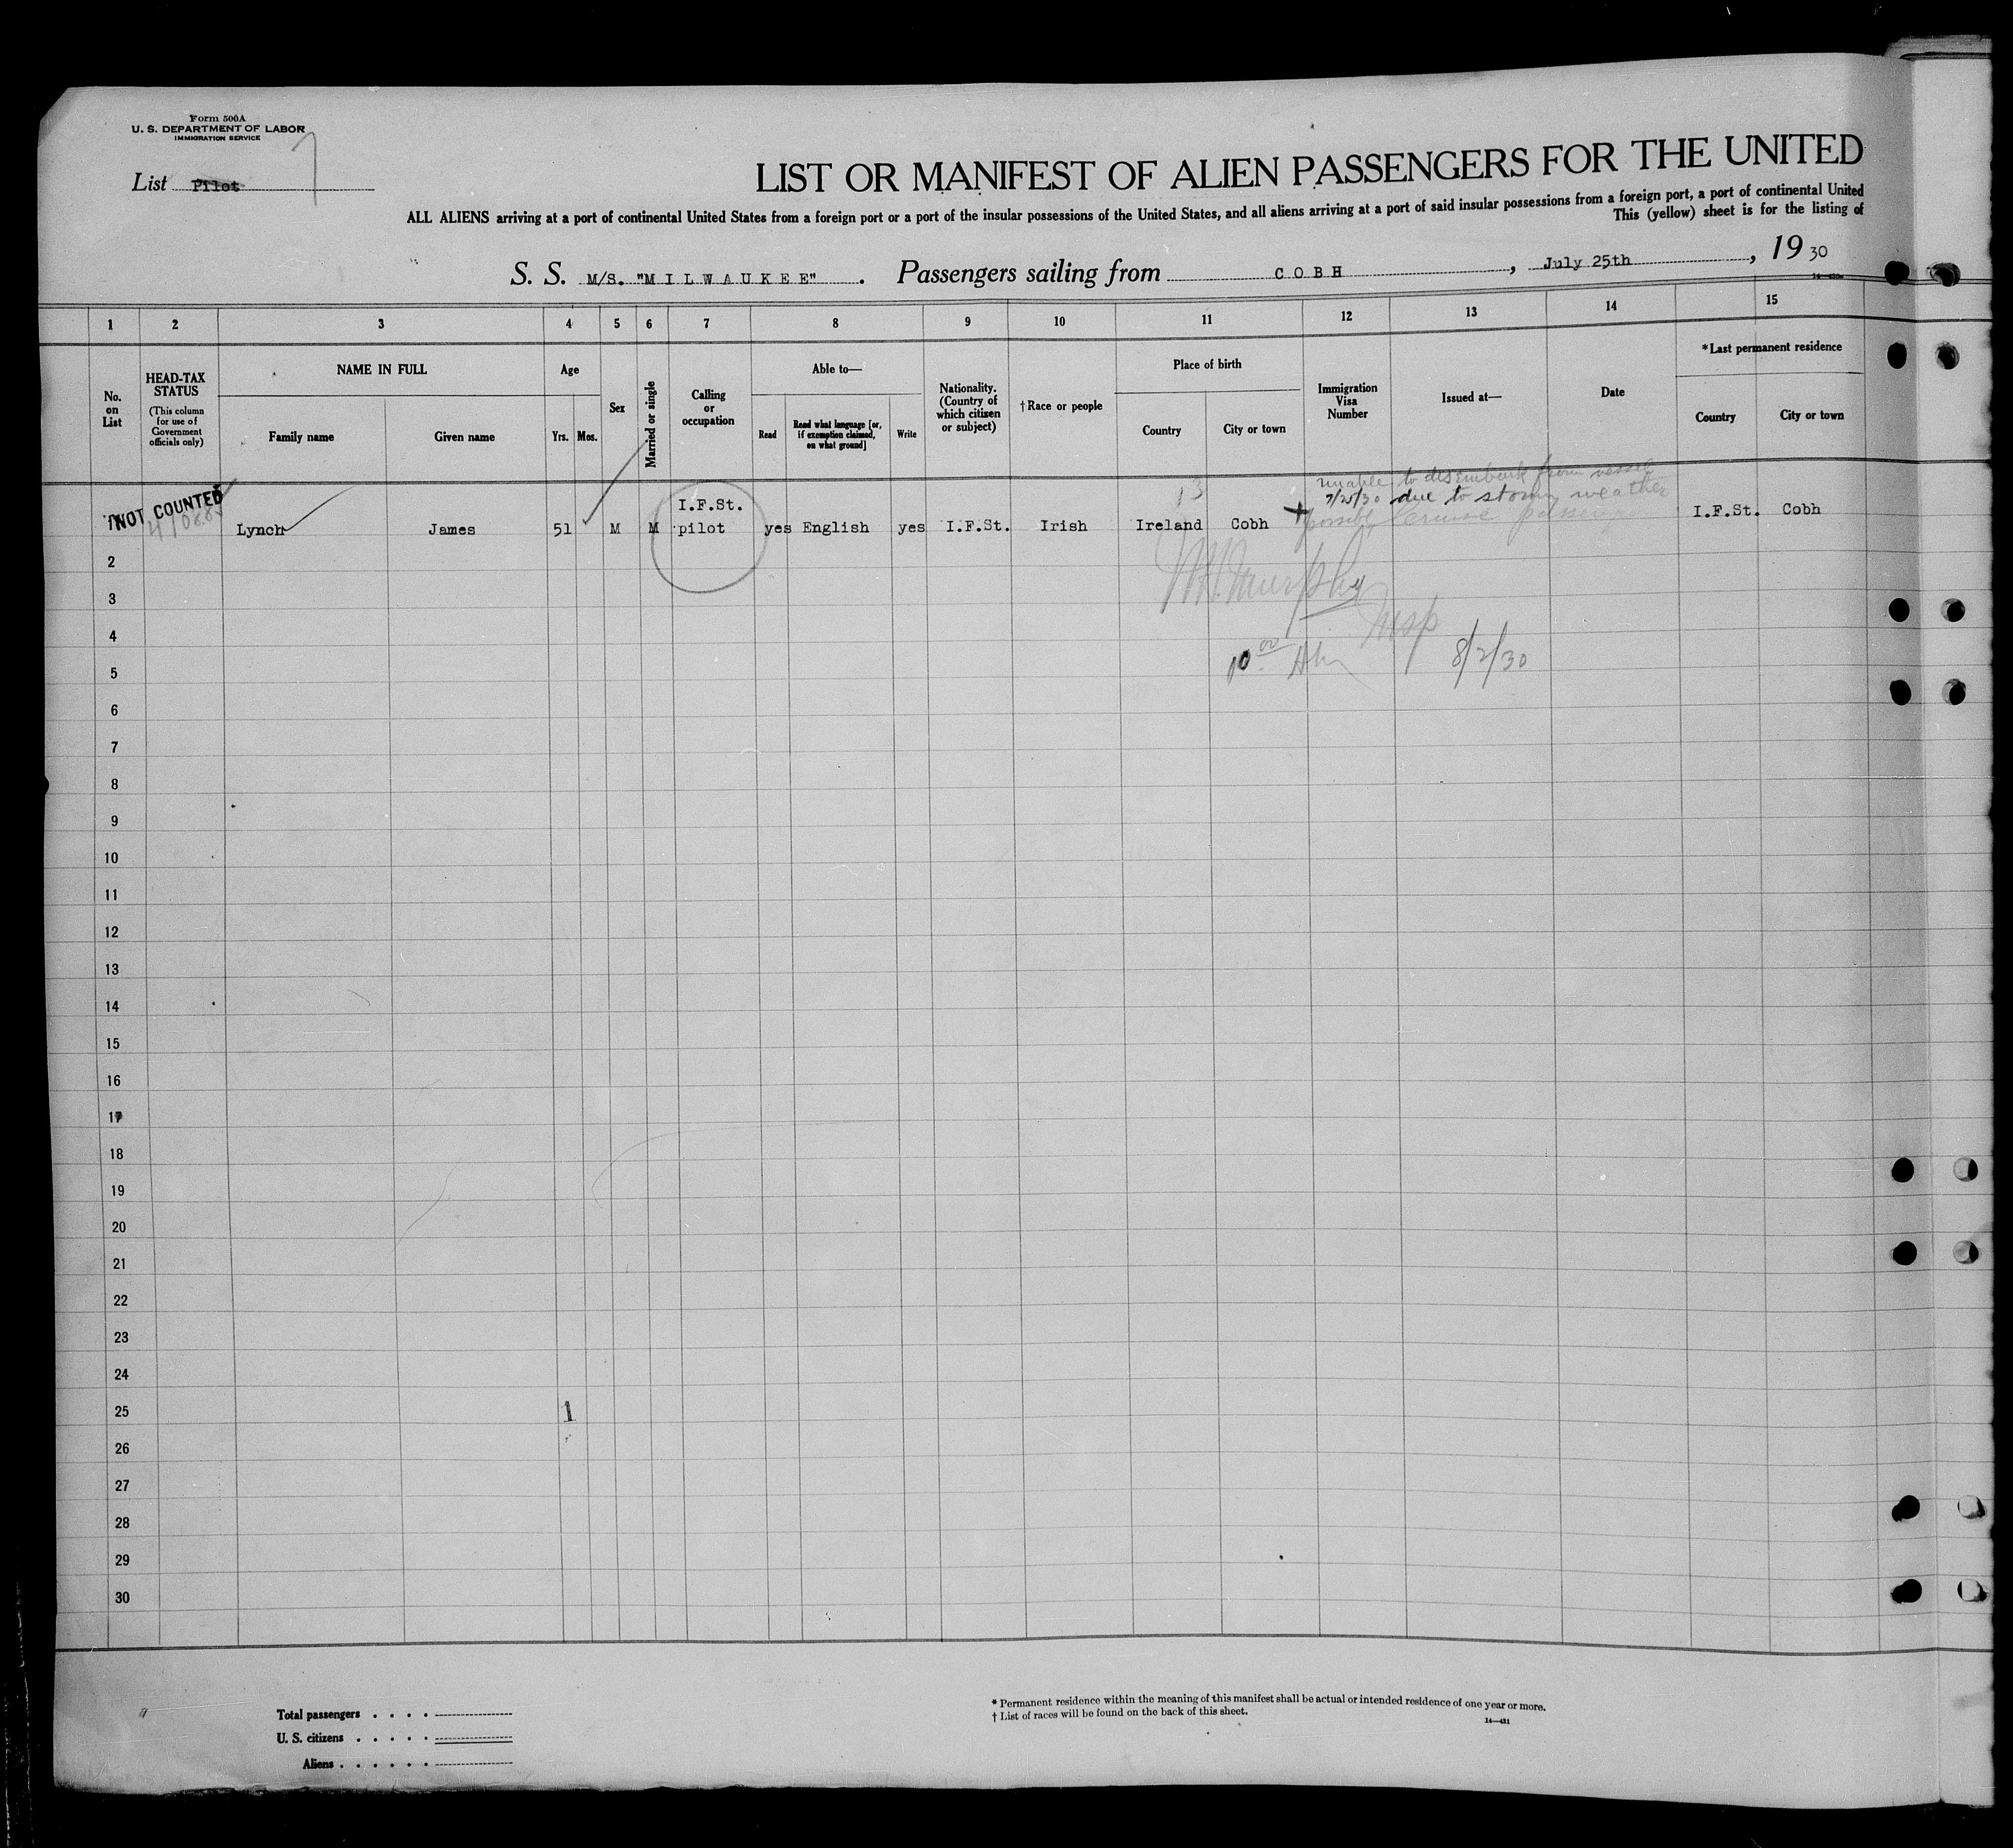 Form 500A
U. S. DEPARTMENT OF LABOR
IMMIGRATION SERVICE
List Pilot 7
LIST OR MANIFEST OF ALIEN PASSENGERS FOR THE UNITED
ALL ALIENS arriving at a port of continental United States from a foreign port or a port of the insular possessions of the United States, and all aliens arriving at a port of said insular possessions from a foreign port, a port of continental United
This (yellow) sheet is for the listing of
S. S. M/S. "MILWAUKEE". Passengers sailing from COBH, July 25th, 19 30
1 2 3 4 5 6 7 8 9 10 11 12 13 14 15
No. on List
HEAD-TAX STATUS
(This column for use of Government officials only)
NAME IN FULL
Family name
Given name
Age
Yrs.
Mos.
Sex
Married or single
Calling or occupation
Able to—
Read
Read what language [or, if exemption claimed, on what ground]
Write
Nationality. (Country of which citizen or subject)
†Race or people
Place of birth
Country
City or town
Immigration Visa Number
Issued at—
Date
*Last permanent residence
Country
City or town
unable to disembark from vessel
7/25/30 due to stormy weather
NOT COUNTED Lynch James 51 M M I.F.St. pilot yes English yes I.F.St. Irish Ireland Cobh I.F.St. Cobh
13
Murphy
Insp
10 00 8/2/30
2
3
4
5
6
7
8
9
10
11
12
13
14
15
16
17
18
19
20
21
22
23
24
25 1
26
27
28
29
30
Total passengers . . . .
U. S. citizens . . . . .
Aliens . . . . . .
* Permanent residence within the meaning of this manifest shall be actual or intended residence of one year or more.
† List of races will be found on the back of this sheet.
14—431